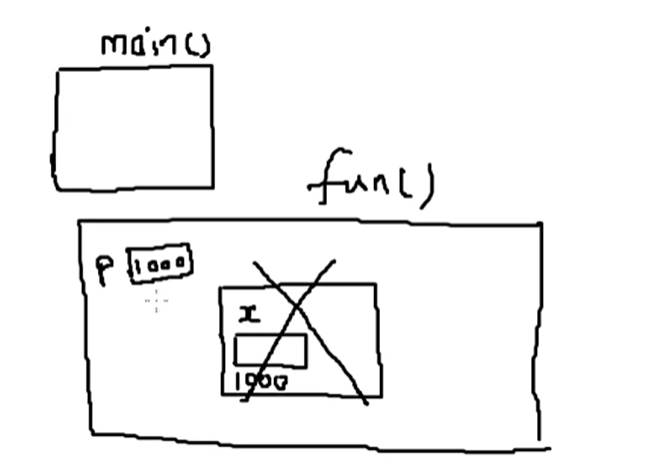 main()
fun()
P 1000
x
1000